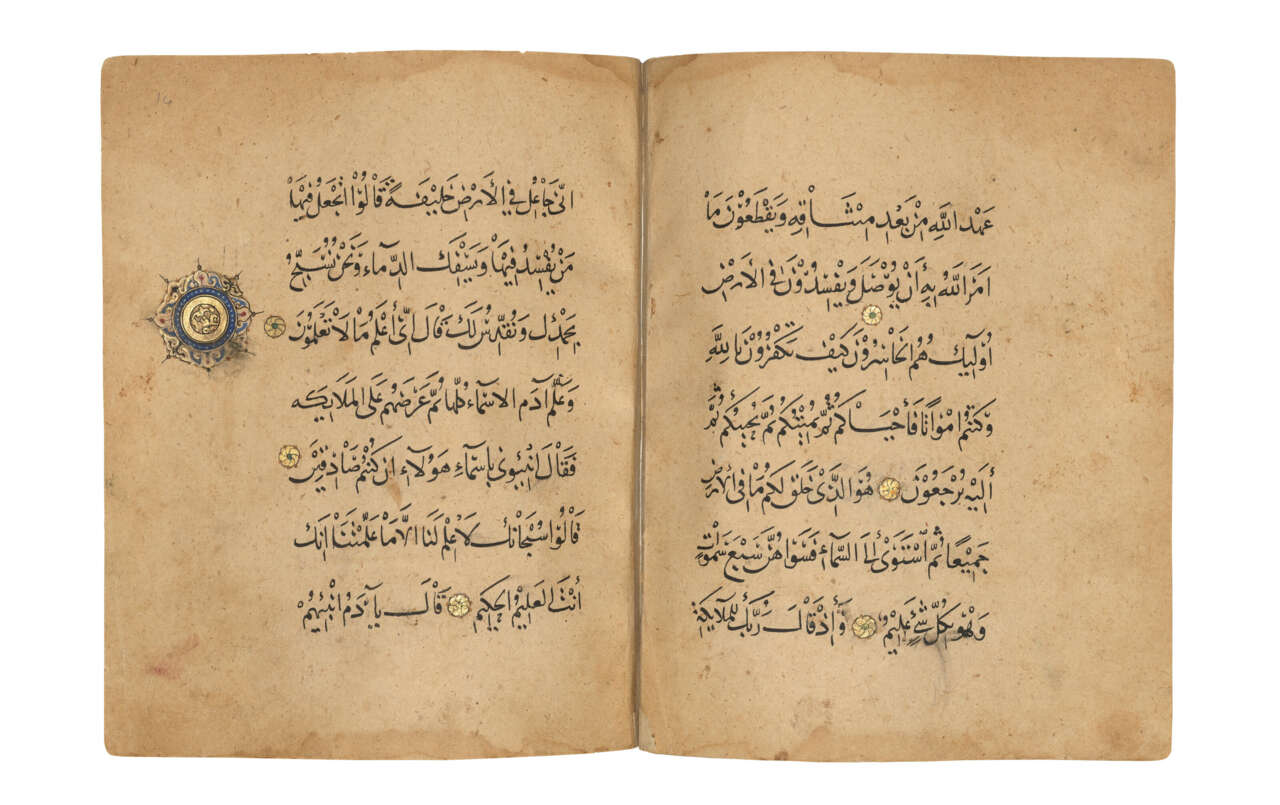 عَهْدَ اللَّهِ مِنْ بَعْدِ مِيْثَاقِهِ وَيَقْطَعُوْنَ مَا
اَمَرَ اللَّهُ بِهِ أَنْ يُوْصَلَ وَيُفْسِدُوْنَ فِي الْأَرْضِ
اُوْلَٰئِكَ هُمُ الْخَاسِرُوْنَ كَيْفَ تَكْفُرُوْنَ بِاللَّهِ
وَكُنْتُمْ اَمْوَاتًا فَأَحْيَاكُمْ ثُمَّ يُمِيْتُكُمْ ثُمَّ يُحْيِيكُمْ ثُمَّ
اِلَيْهِ تُرْجَعُوْنَ هُوَ الَّذِيْ خَلَقَ لَكُمْ مَا فِي الْأَرْضِ
جَمِيْعًا ثُمَّ اسْتَوَىٰ إِلَى السَّمَاءِ فَسَوَّاهُنَّ سَبْعَ سَمٰوَاتٍ
وَهْوَ بِكُلِّ شَيْءٍ عَلِيْمٌ وَإِذْ قَالَ رَبُّكَ لِلْمَلَائِكَةِ
اِنِّي جَاعِلٌ فِي الْأَرْضِ خَلِيْفَةً قَالُوْا اَتَجْعَلُ فِيْهَا
مَنْ يُفْسِدُ فِيْهَا وَيَسْفِكُ الدِّمَاءَ وَنَحْنُ نُسَبِّحُ
بِحَمْدِكَ وَنُقَدِّسُ لَكَ قَالَ اِنِّي أَعْلَمُ مَا لَا تَعْلَمُوْنَ
وَعَلَّمَ آدَمَ الْاَسْمَاءَ كُلَّهَا ثُمَّ عَرَضَهُمْ عَلَى الْمَلَايِكَه
فَقَالَ اَنْبِئُونِي بِاَسْمَاءِ هَؤُلَاءِ اِنْ كُنْتُمْ صَادِقِيْنَ
قَالُوْا سُبْحَانَكَ لَا عِلْمَ لَنَا اِلَّا مَا عَلَّمْتَنَا اِنَّكَ
أَنْتَ الْعَلِيْمُ الْحَكِيمُ قَالَ يَا آدَمُ اَنْبِئْهُمْ